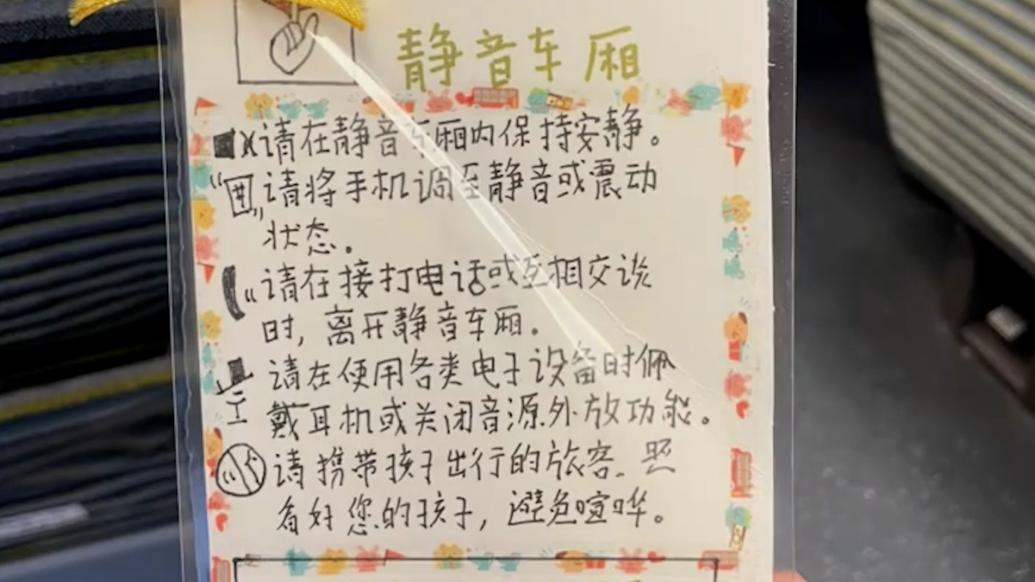 静音车厢
请在静音车厢内保持安静。
请将手机调至静音或震动
状态。
请在接打电话或互相交谈
时,离开静音车厢。
请在使用各类电子设备时佩
戴耳机或关闭音源外放功能。
请携带孩子出行的旅客 照
看好您的孩子,避免喧哗。